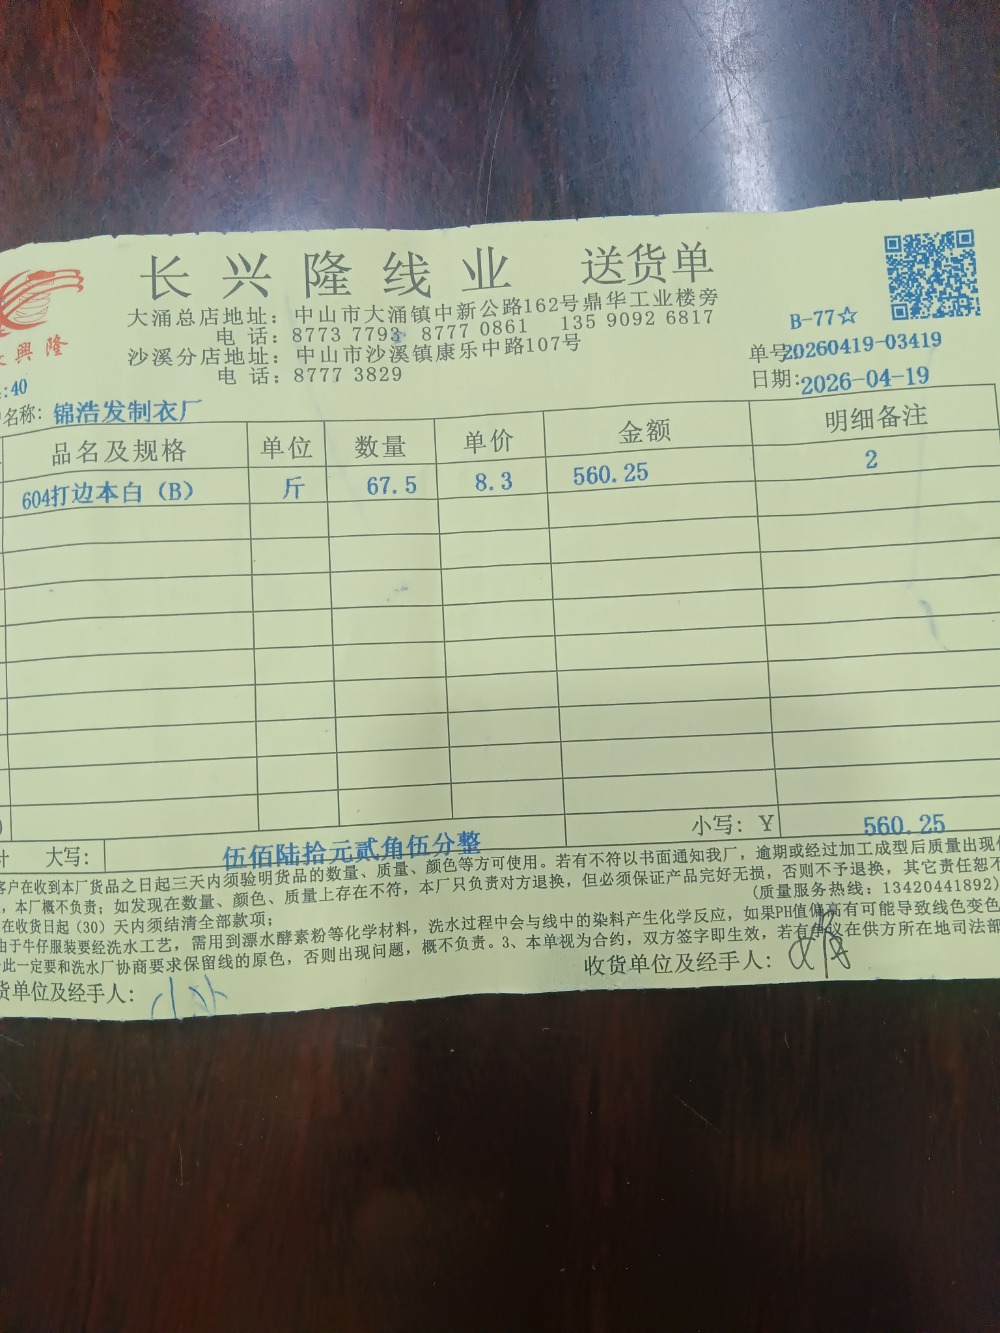 长兴隆线业 送货单
大涌总店地址：中山市大涌镇中新公路162号鼎华工业楼旁
电 话：8773 7793 8777 0861 135 9092 6817
沙溪分店地址：中山市沙溪镇康乐中路107号
电 话：8777 3829
興隆
B-77☆
单号:20260419-03419
日期:2026-04-19
:40
名称：锦浩发制衣厂
品名及规格 单位 数量 单价 金额 明细备注
604打边本白（B） 斤 67.5 8.3 560.25 2
大写： 伍佰陆拾元贰角伍分整 小写：Y 560.25
客户在收到本厂货品之日起三天内须验明货品的数量、质量、颜色等方可使用。若有不符以书面通知我厂，逾期或经过加工成型后质量出现
，本厂概不负责；如发现在数量、颜色、质量上存在不符，本厂只负责对方退换，但必须保证产品完好无损，否则不予退换，其它责任恕不
在收货日起（30）天内须结清全部款项； (质量服务热线：13420441892)
由于牛仔服装要经洗水工艺，需用到漂水酵素粉等化学材料，洗水过程中会与线中的染料产生化学反应，如果PH值偏高有可能导致线色变色
此一定要和洗水厂协商要求保留线的原色，否则出现问题，概不负责。3、本单视为合约，双方签字即生效，若有争议在供方所在地司法部
货单位及经手人： 收货单位及经手人：